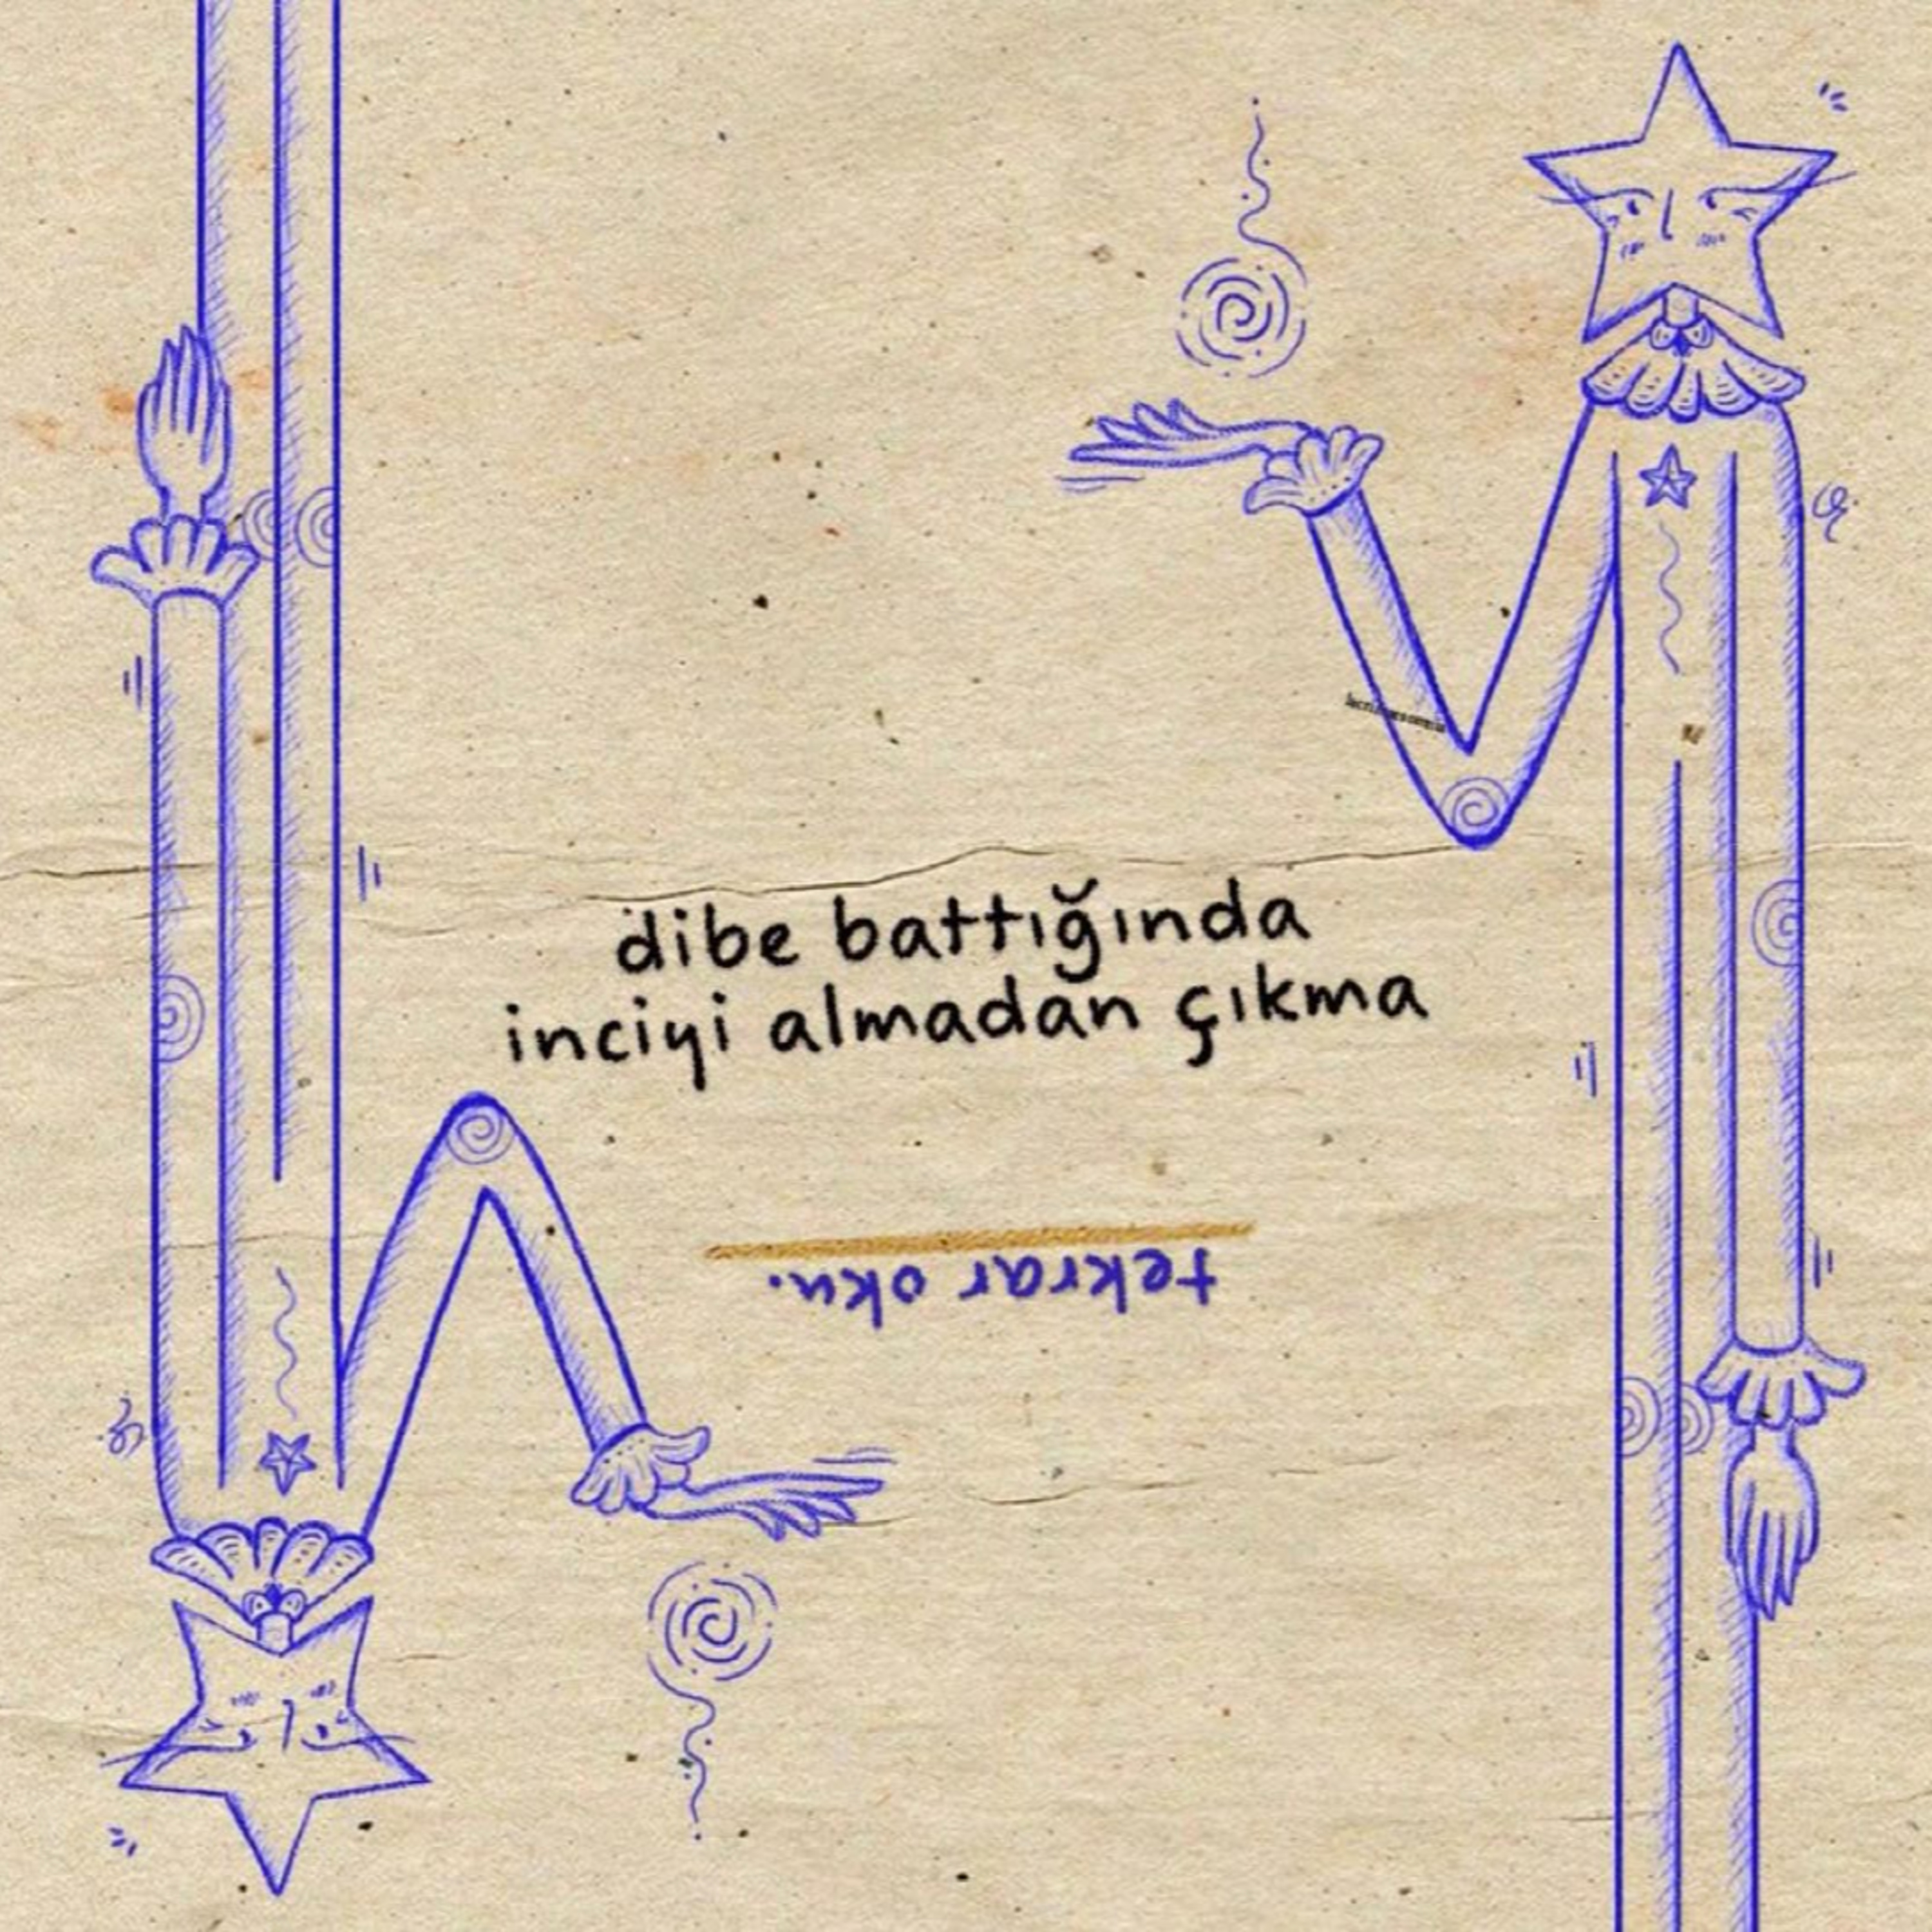 dibe battığında
inciyi almadan çıkma
tekrar oku.